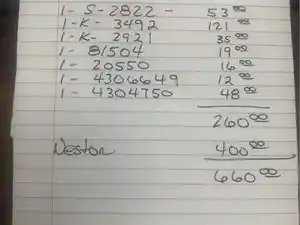 1- S-2822- 53⁰⁰
1-K- 3492 121⁰⁰
1-K- 2921 35⁰⁰
1- 81504 19⁰⁰
1- 20550 16⁰⁰
1- 4306649 12⁰⁰
1- 4304750 48⁰⁰
260⁰⁰
Nestor 400⁰⁰
660⁰⁰